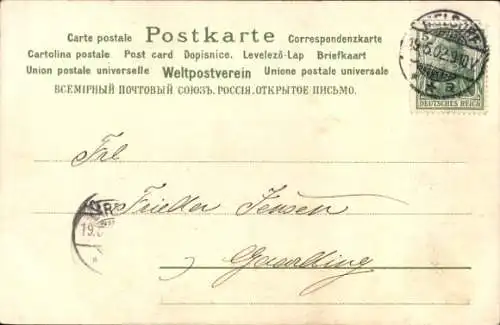 Postkarte
Carte postale Correspondenzkarte
Cartolina postale Post card Dopisnice. Levelező-Lap Briefkaart
Union postale universelle Weltpostverein Unione postale universale
ВСЕМІРНЫЙ ПОЧТОВЫЙ СОЮЗЪ. РОССІЯ. ОТКРЫТОЕ ПИСЬМО.
19.5.02.9-10V
DEUTSCHES REICH
Frl
Frieller Jensen
Gaarding
19.